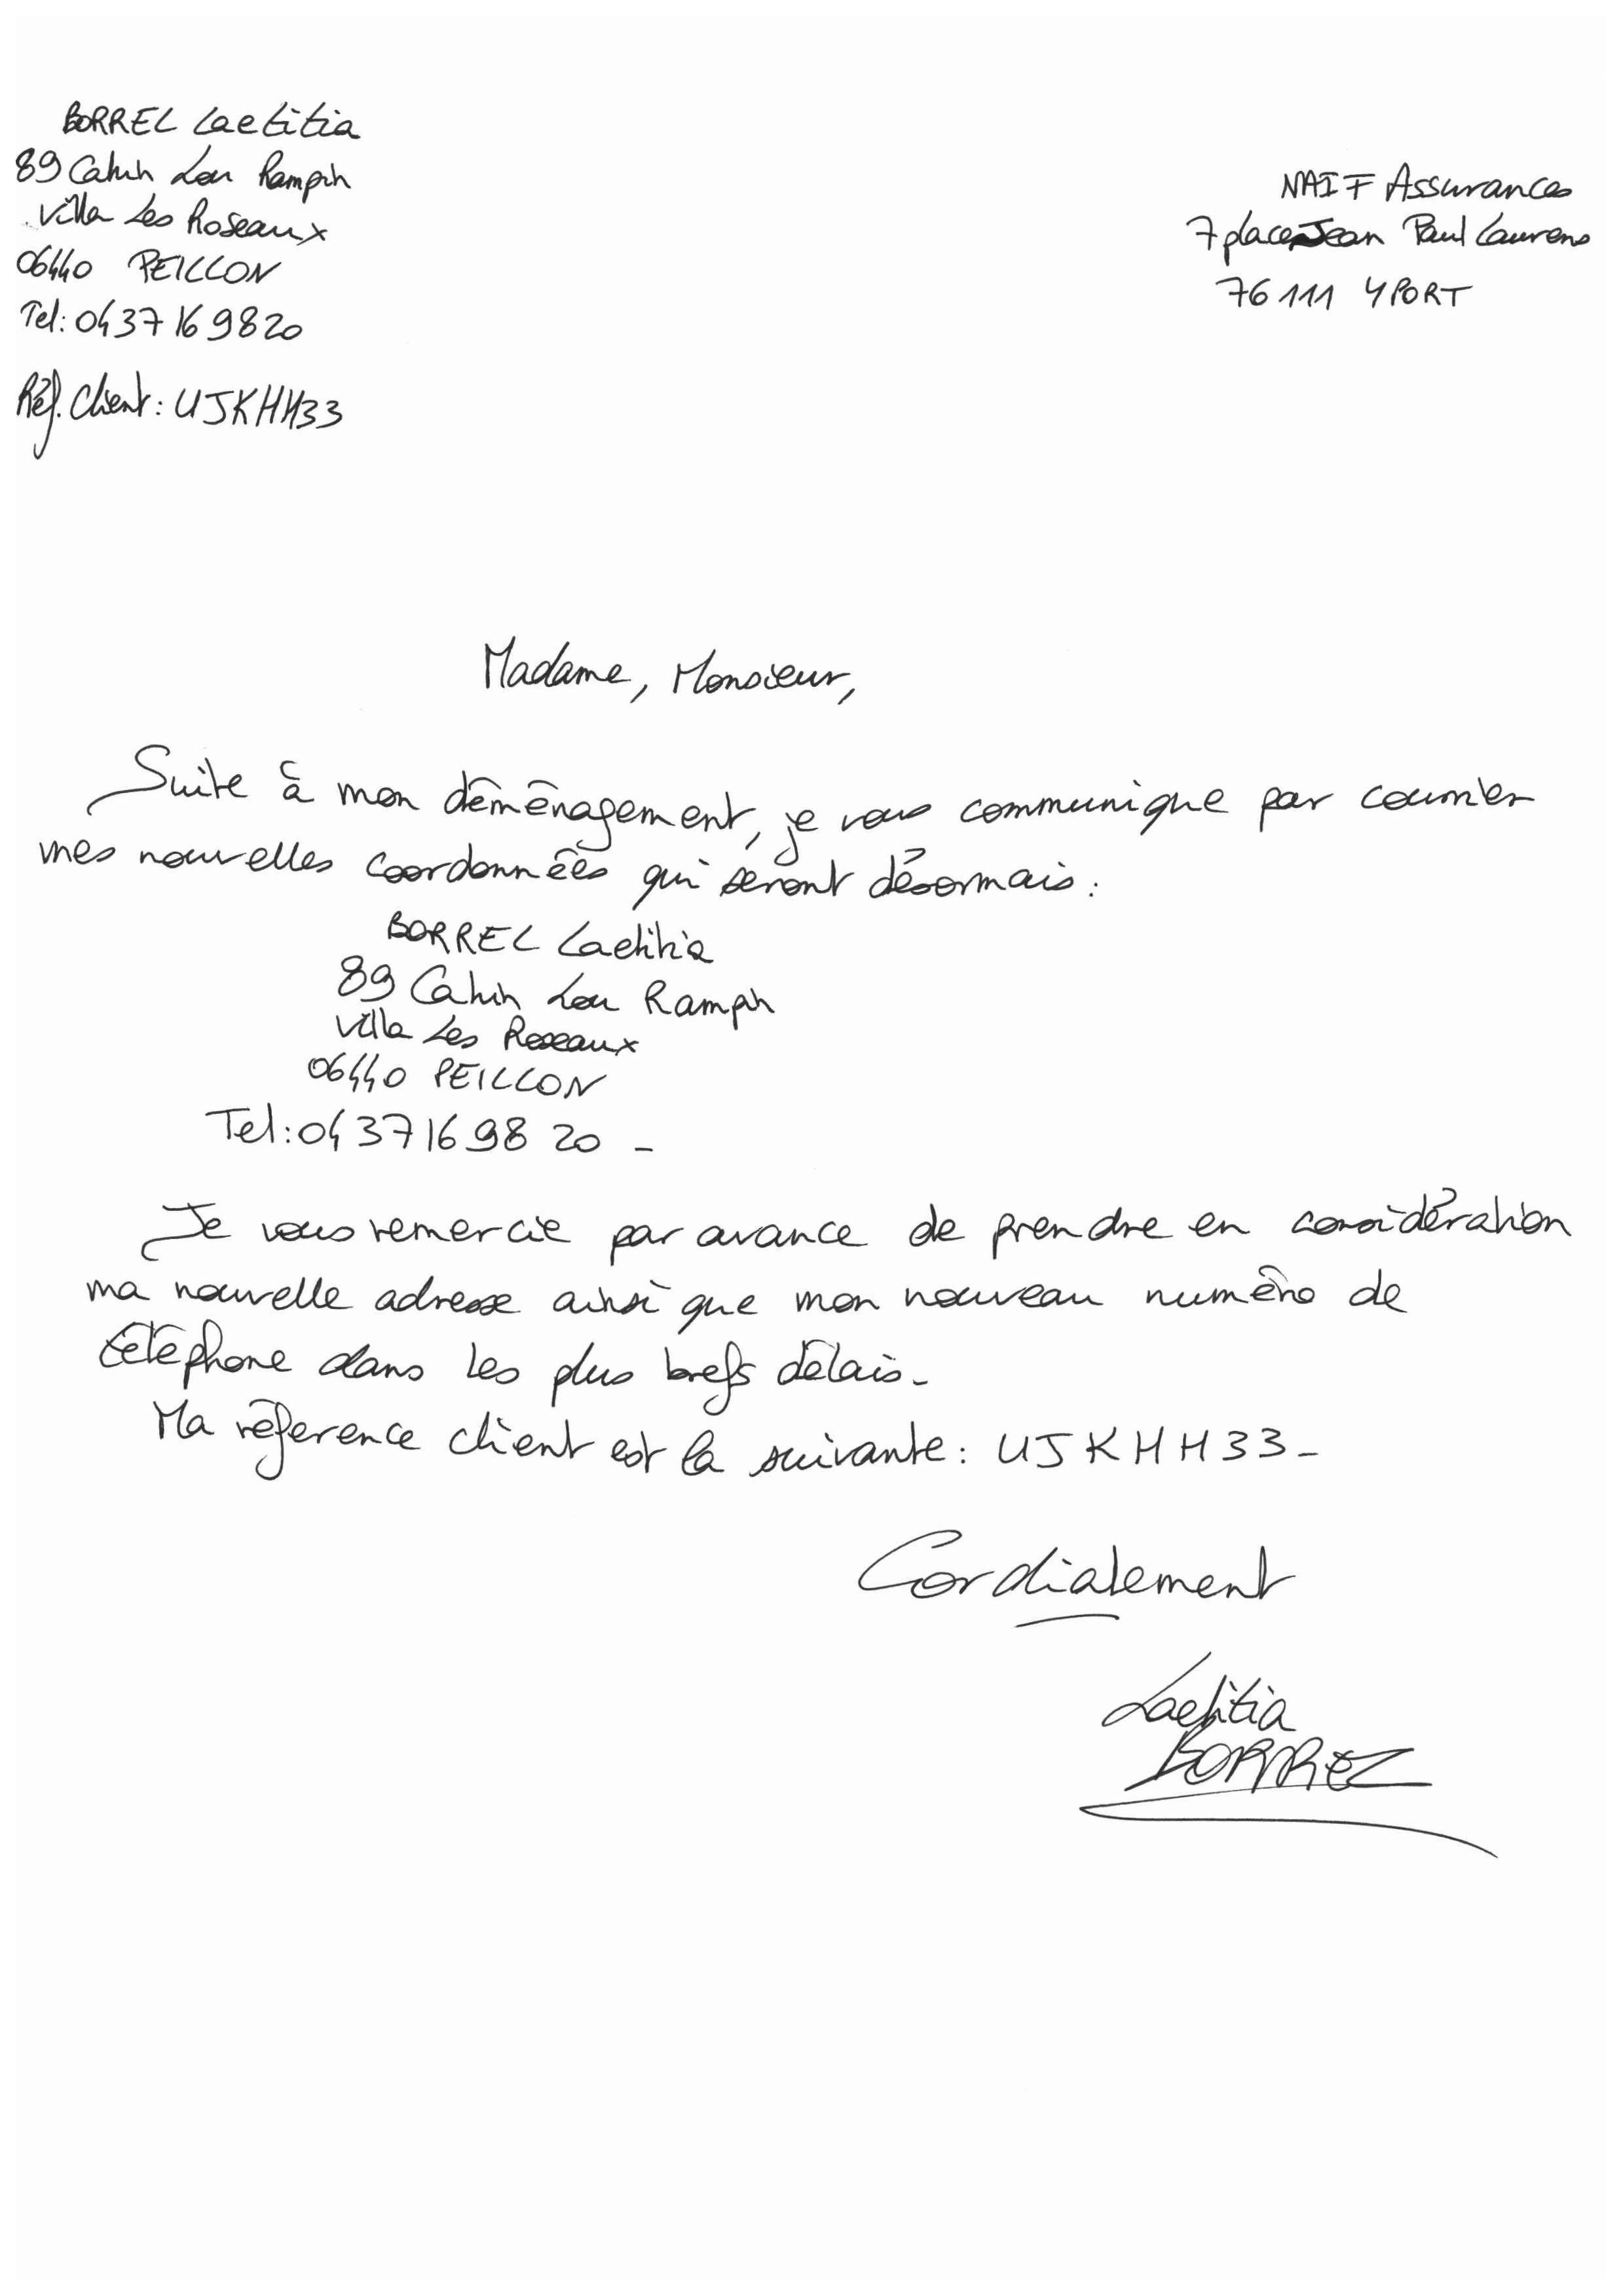 BORREL Laetitia
89 Camin Lou Rampin
Villa Les Roseaux
06440 PEILLON
Tel: 04 37 16 98 20
Réf. Client: UJKHH33
NAIF Assurances
7 place Jean Paul Laurens
76111 YPORT
Madame, Monsieur,
Suite à mon déménagement, je vous communique par courrier
mes nouvelles coordonnées qui seront désormais :
BORREL Laetitia
89 Camin Lou Rampin
Villa Les Roseaux
06440 PEILLON
Tel: 04 37 16 98 20 -
Je vous remercie par avance de prendre en considération
ma nouvelle adresse ainsi que mon nouveau numéro de
téléphone dans les plus brefs délais -
Ma réference client est la suivante : UJKHH33 -
Cordialement
Laetitia
BORREL